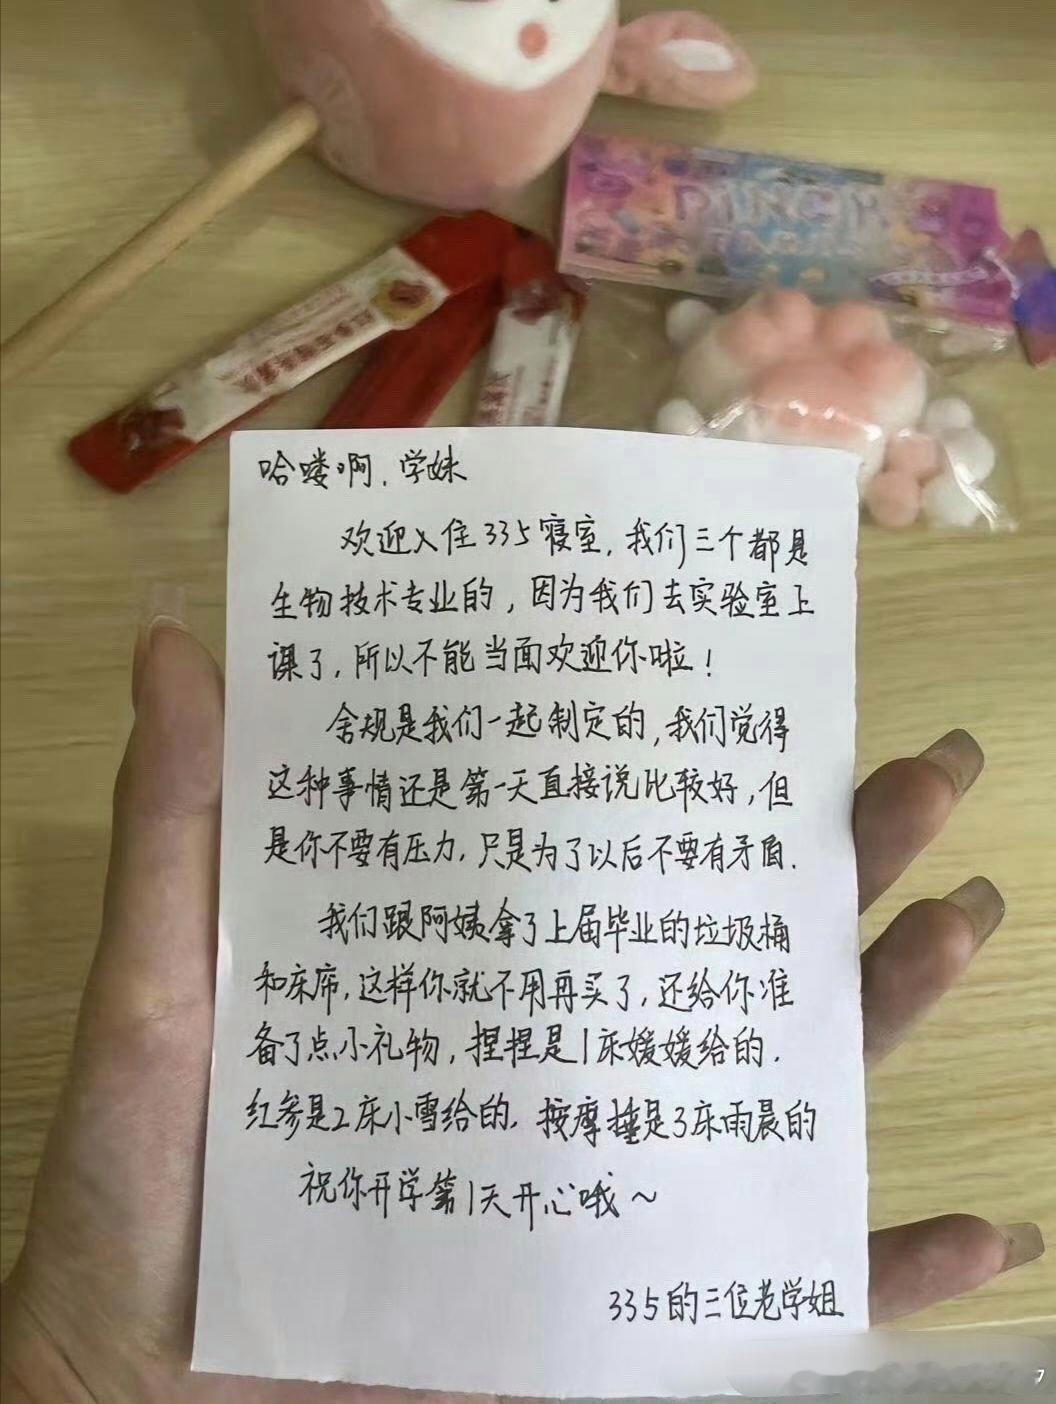 哈喽啊，学妹
欢迎入住335寝室，我们三个都是
生物技术专业的，因为我们去实验室上
课了，所以不能当面欢迎你啦！
舍规是我们一起制定的，我们觉得
这种事情还是第一天直接说比较好，但
是你不要有压力，只是为了以后不要有矛盾．
我们跟阿姨拿了上届毕业的垃圾桶
和床席，这样你就不用再买了，还给你准
备了点小礼物，捏捏是1床媛媛给的．
红参是2床小雪给的，按摩捶是3床雨晨的
祝你开学第1天开心哦～
335的三位老学姐